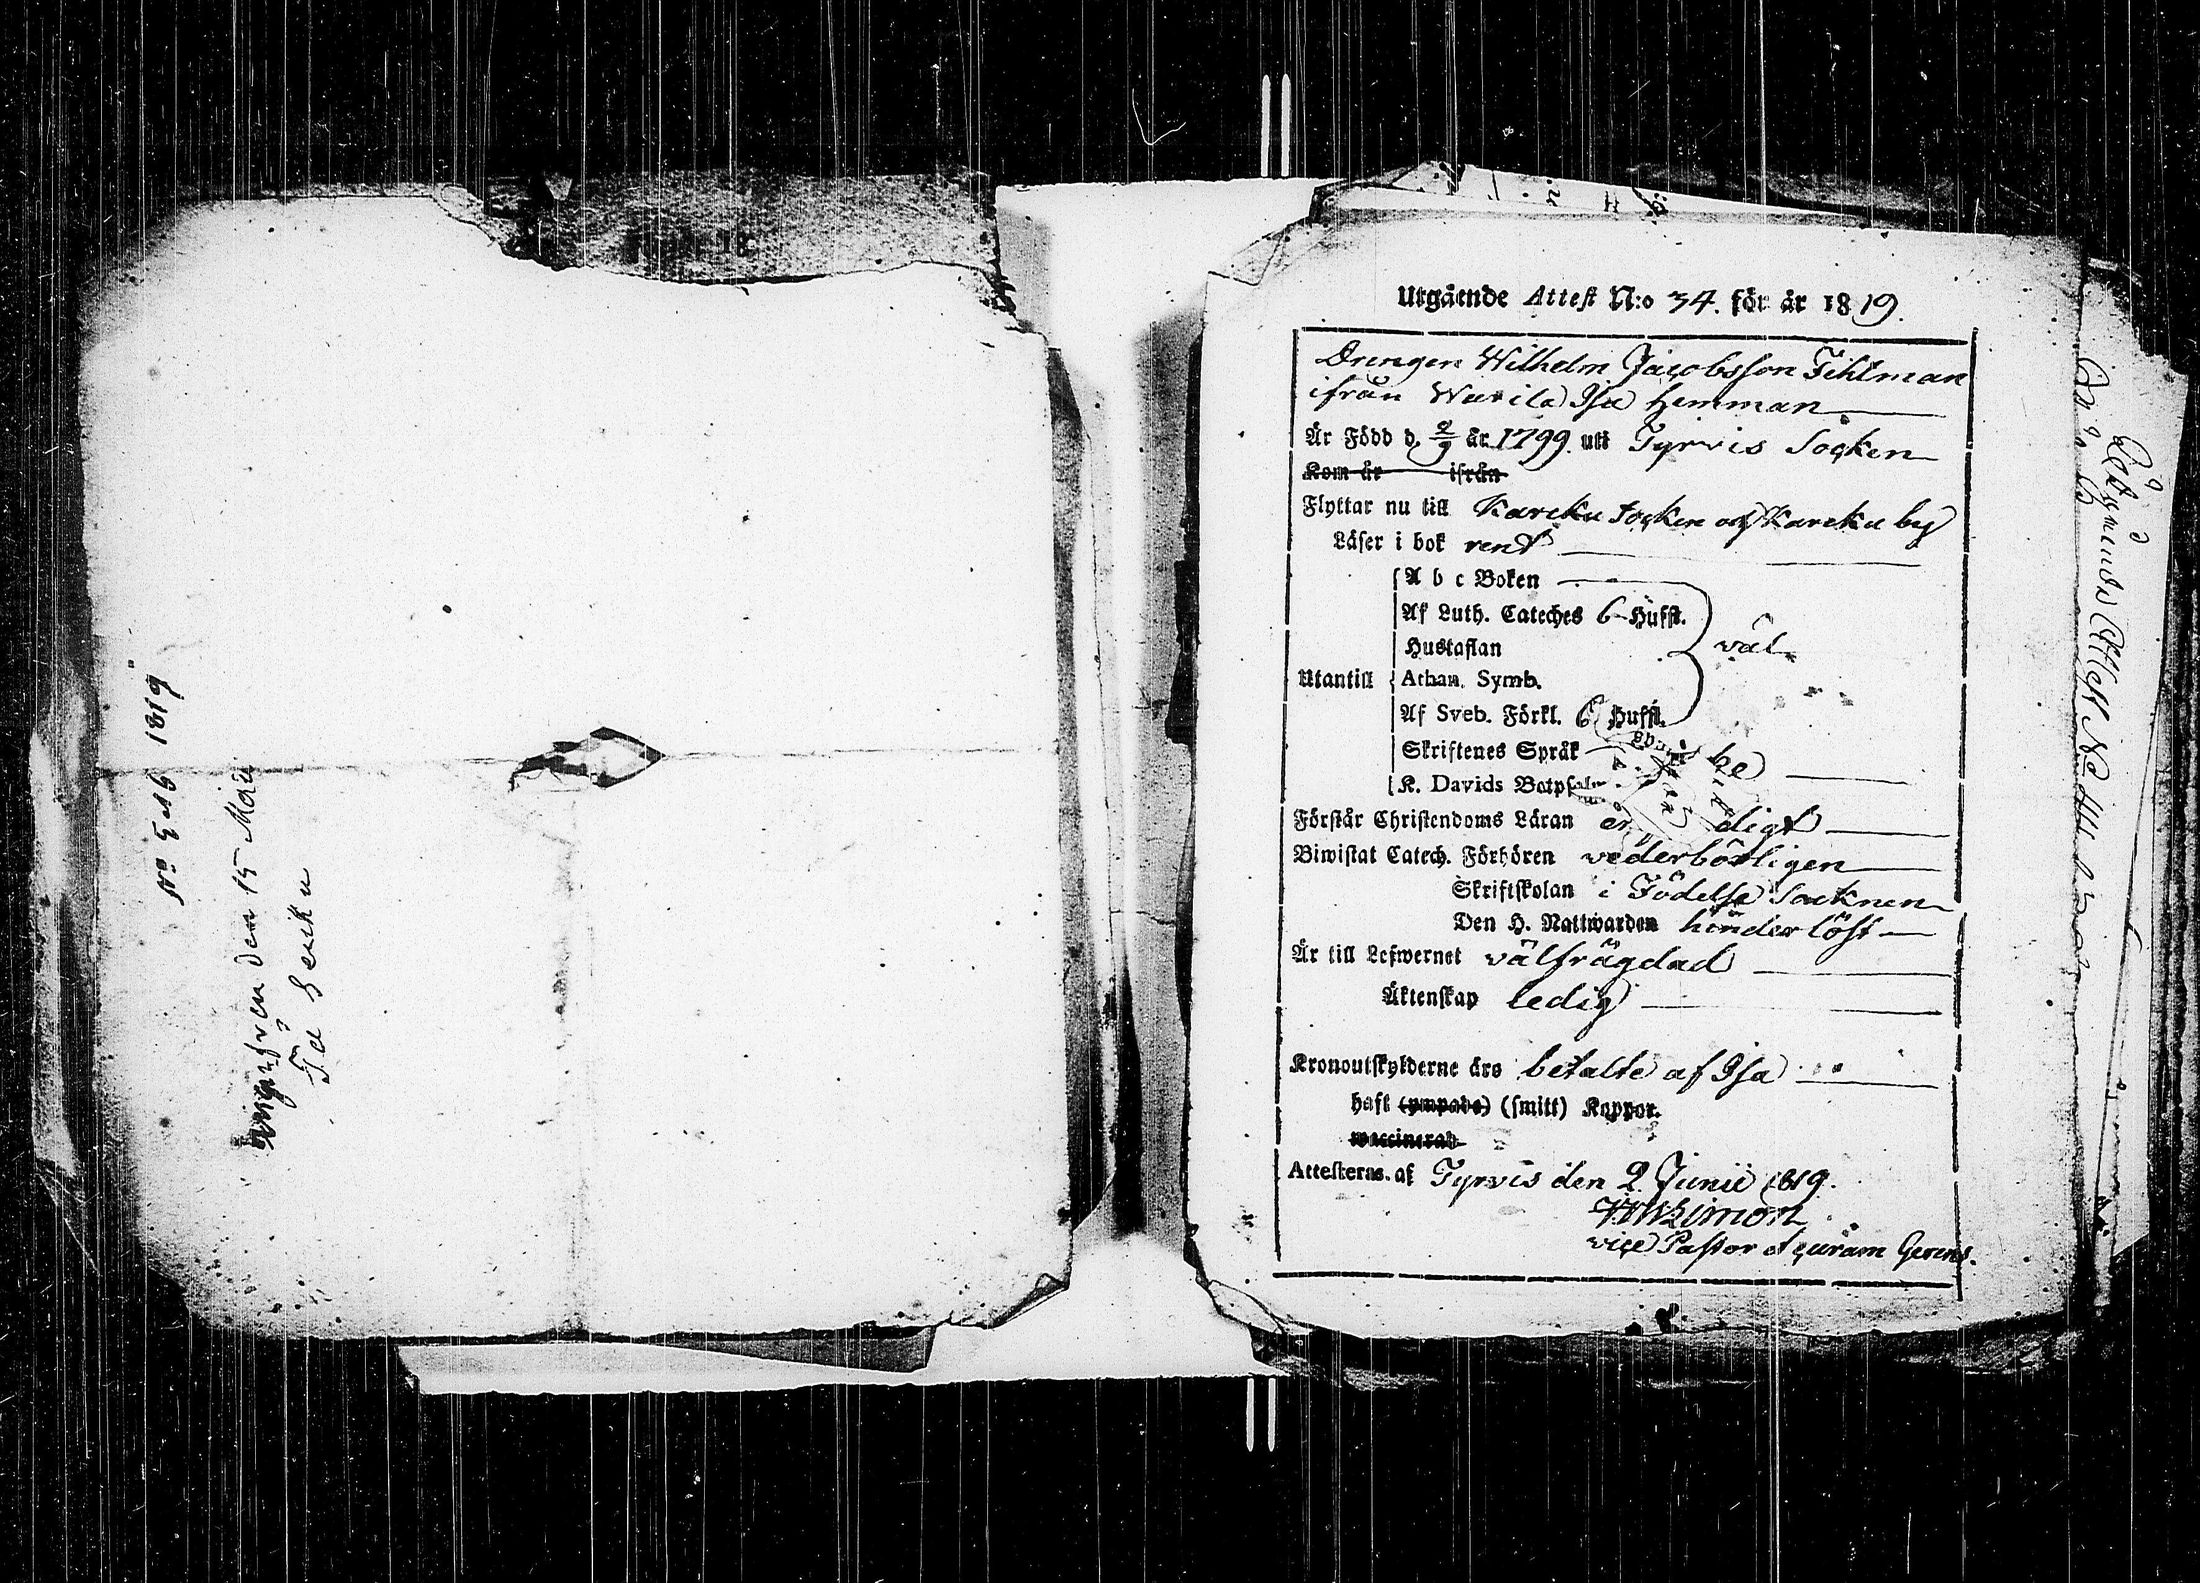 No 546 1819
den 15 Maii
Utgående Attest N:o 34. för år 1819.
Drengen Wilhelm Jacobsson Fihlman
ifrån Warila Isa hemman
Är Född d. 2/9 år 1799. uti Tyrvis Socken
Kom år ifrån
Flyttar nu till Karcku Socken och Karcku by
Läser i bok rent
A b c Boken
Af Luth. Cateches 6 Hufst.
Hustaflan väl
Utantill Athan. Symb.
Af Sveb. Förkl. 6 Hufst.
Skriftenes Språk
K. Davids Botpsalm.
Förstår Christendoms Läran
Biwistat Catech. Förhören vederbörligen
Skriftskolan i Födelse Socknen
Den H. Nattwarden hinderlöst
Är till Lefwernet välfrägdad
Äktenskap ledig
Kronoutskylderne äro betalte af Isa
haft (ympade) (smitt) Koppor.
waccinerad
Attesteras. af Tyrvis den 2 Junii 1819.
vice Pastor et curam Gerens.